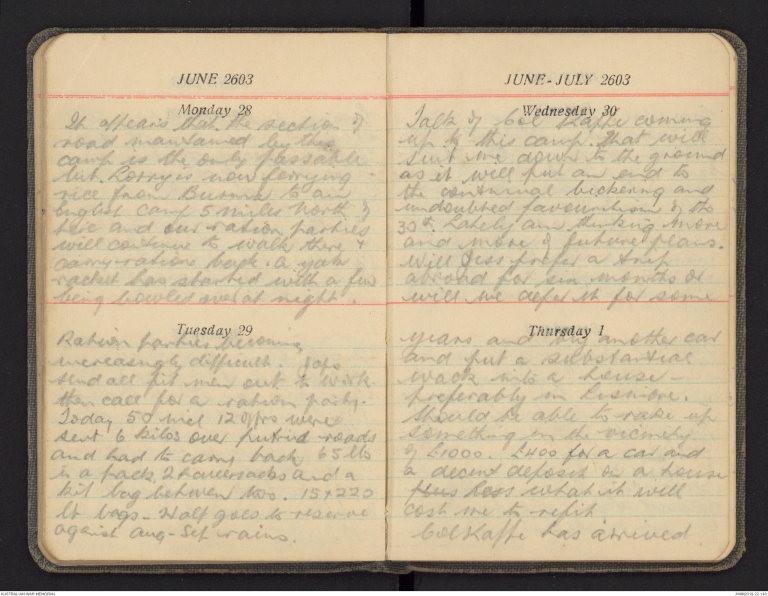 JUNE 2603
Monday 28
It appears that the section of
road maintained by this
camp is the only passable
bit. Lorry is now ferrying
rice from Burma to an
English camp 5 miles North of
here and our ration parties
will continue to walk there &
carry rations back. A yak
racket has started with a few
being bowled over at night.
Tuesday 29
Ration parties becoming
increasingly difficult. Japs
send all fit men out to work
then call for a ration party.
Today 50 incl 12 Offrs were
sent 6 kilos over putrid roads
and had to carry back 65 lbs
in a pack, 2 haversacks and a
kit bag between two. 15 x 220
lb bags - Half goes to reserve
against Aug-Sep rains.
JUNE - JULY 2603
Wednesday 30
Talk of Col Kappe coming
up to this camp. That will
suit me down to the ground
as it will put an end to
the continual bickering and
undoubted favouritism of the
30th. Lately am thinking more
and more of future plans.
Will Jess prefer a trip
abroad for six months or
will we defer it for some
Thursday 1
years and buy another car
and put a substantial
wack into a house -
preferably in Lismore.
Should be able to rake up
something in the vicinity
of £1000. £400 for a car and
a decent deposit on a house
less what it will
cost me to refit
Col Kappe has arrived
AUSTRALIAN WAR MEMORIAL